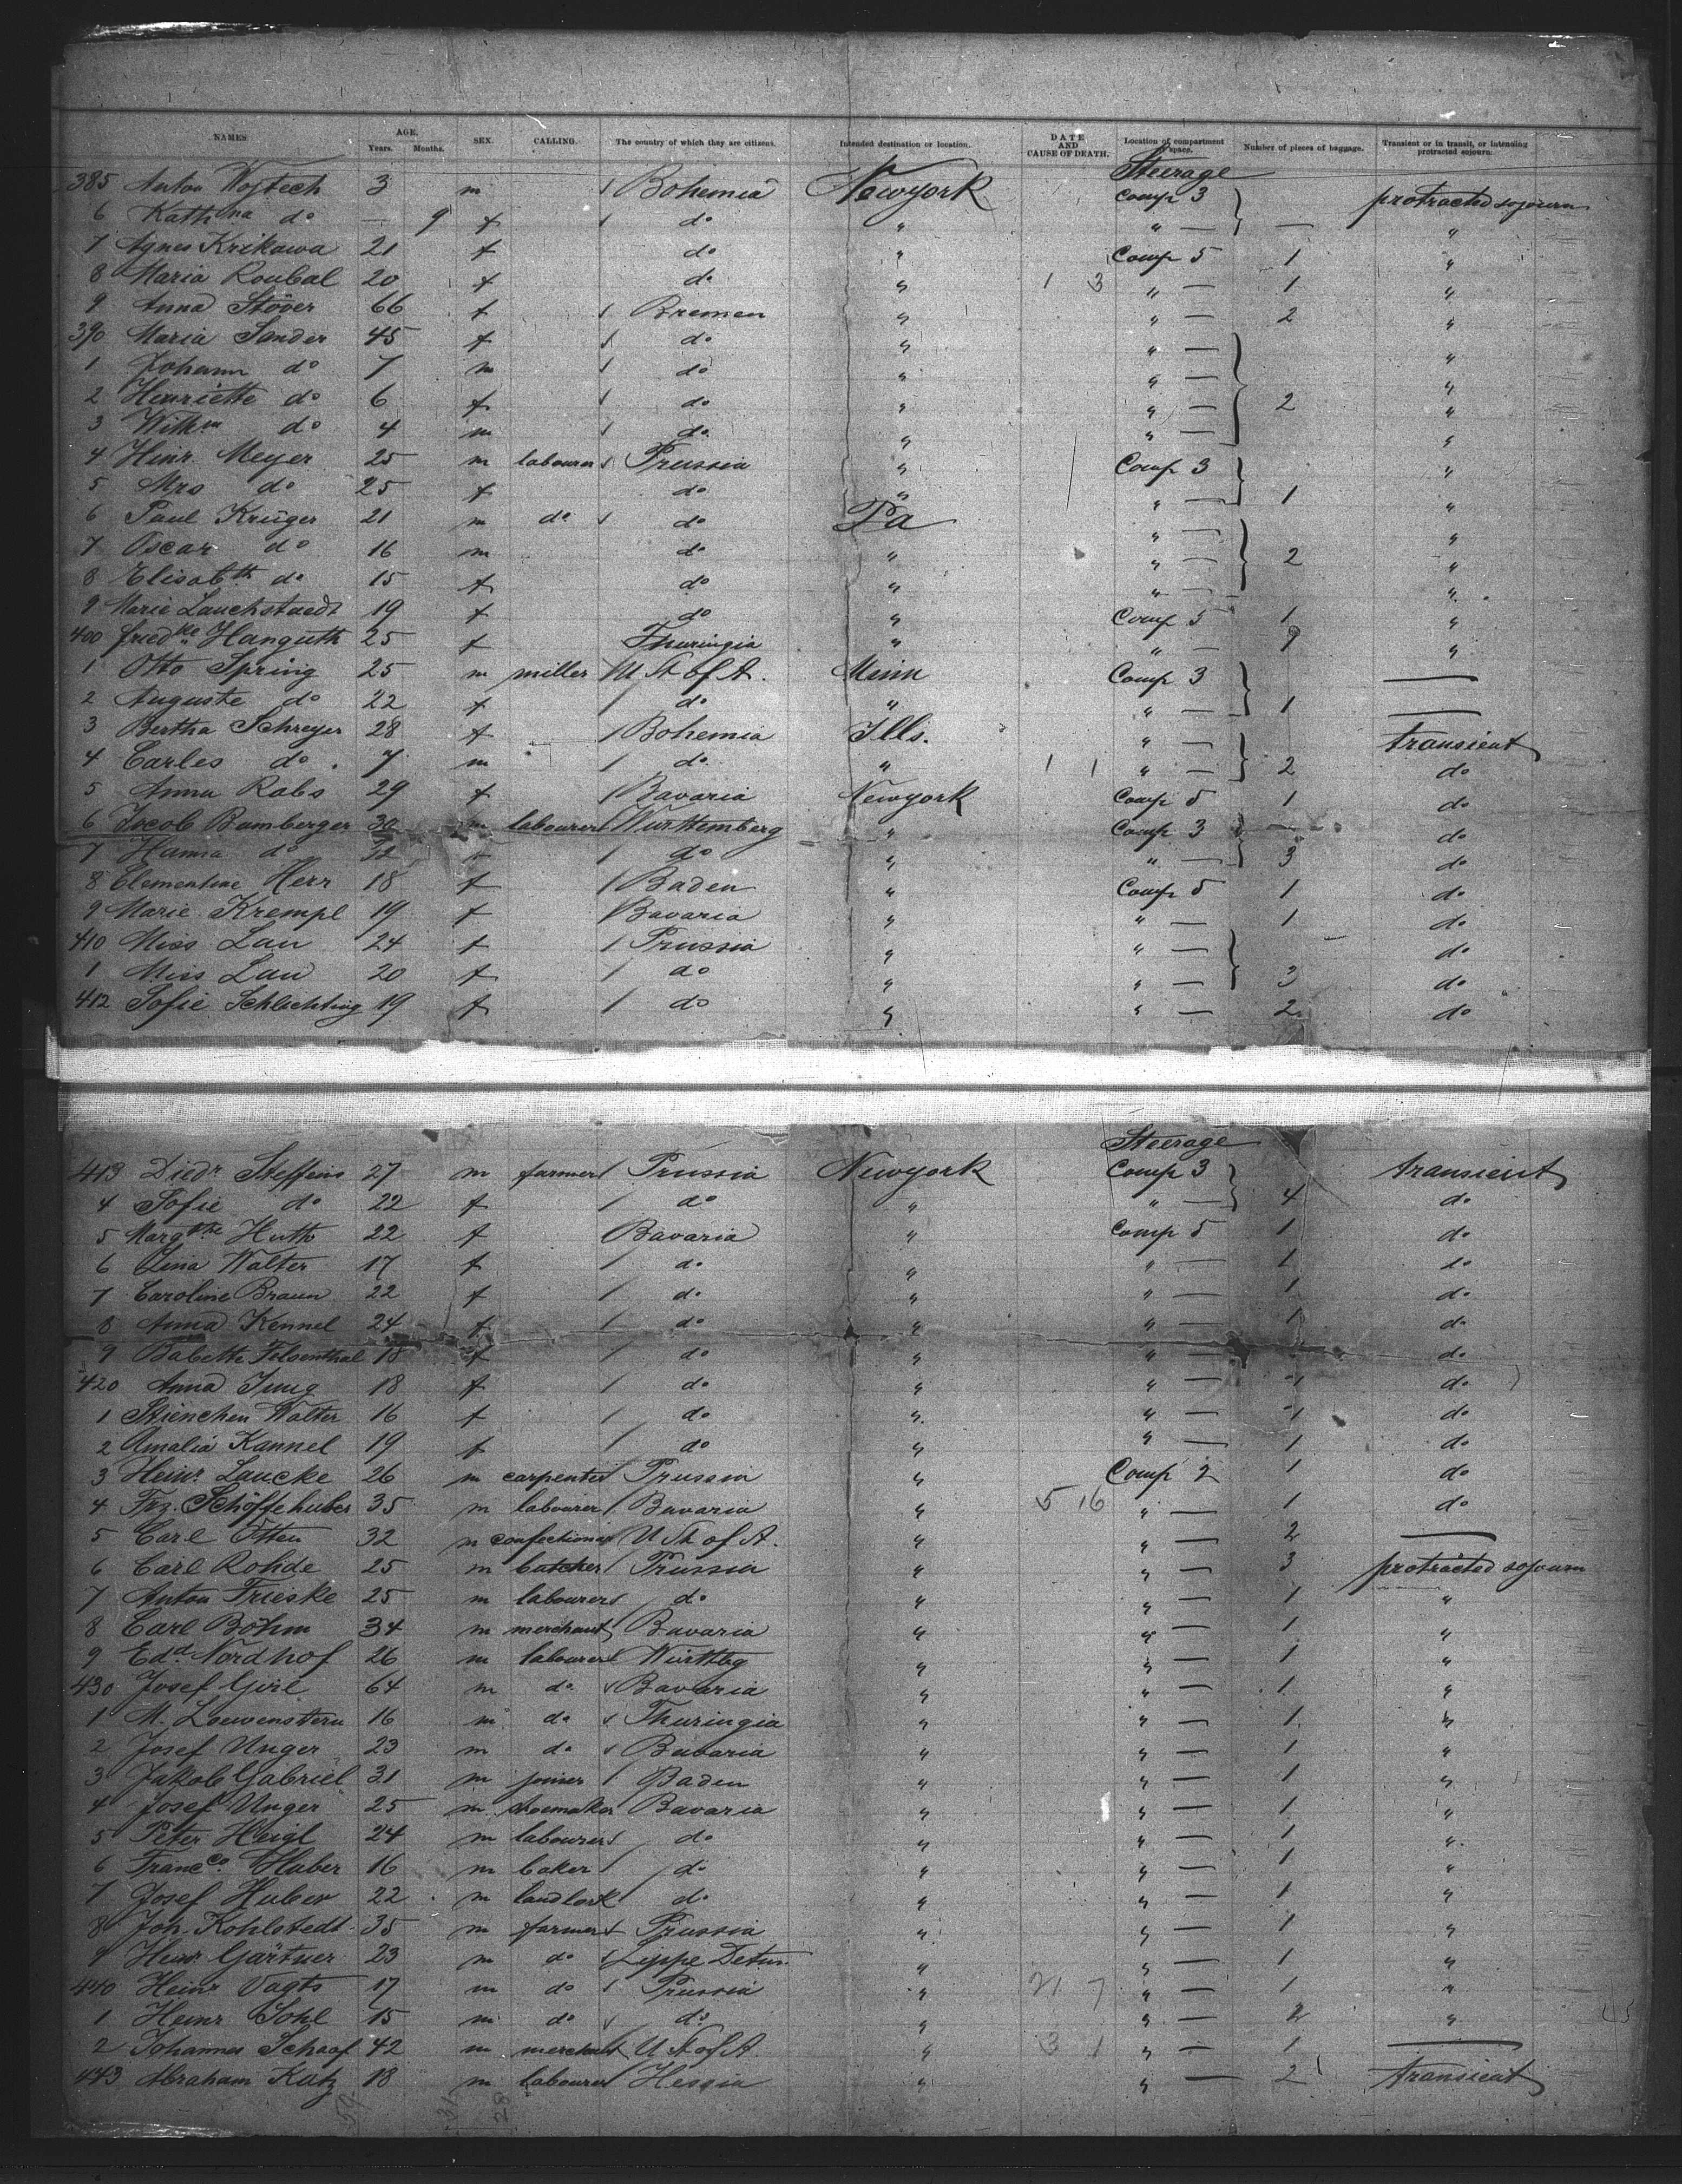 NAMES AGE. Years. Months. SEX. CALLING. The country of which they are citizens. Intended destination or location. DATE AND CAUSE OF DEATH. Location of compartment or space. Number of pieces of baggage. Transient or in transit, or intending protracted sojourn.
Steerage
385 Anton Wojtech 3 m Bohemia Newyork Comp 3 protracted sojourn
6 Kathna do — 9 f do " " — — "
7 Agnes Krikawa 21 f do " Comp 5 1 "
8 Maria Roubal 20 f do " 1 3 " — 1 "
9 Anna Stöver 66 f Bremen " " — 2 "
390 Maria Sander 45 f do " " — "
1 Johann do 7 m do " " — "
2 Henriette do 6 f do " " — 2 "
3 Wilhm do 4 m do " " — "
4 Heinr. Meyer 25 m labourer Prussia " Comp 3 "
5 Mrs do 25 f do " " — 1 "
6 Paul Krüger 21 m do do Pa " — "
7 Oscar do 16 m do " " — 2 "
8 Elisabth do 15 f do " " — "
9 Marie Lauchstaedt 19 f do " Comp 5 1 "
400 Friedke Hanguth 25 f Thuringia " " — 1 "
1 Otto Spring 25 m miller U St of A. Minn Comp 3 —
2 Auguste do 22 f do " " — 1 —
3 Bertha Schreyer 28 f Bohemia Ills. " — transient
4 Carles do 7 m do " 1 1 " — 2 do
5 Anna Rabs 29 f Bavaria Newyork Comp 5 1 do
6 Jacob Bamberger 30 m labourer Wurttemberg " Comp 3 — do
7 Hanna do 32 f do " " — 3 do
8 Clementine Herr 18 f Baden " Comp 5 1 do
9 Marie Krempl 19 f Bavaria " " — 1 do
410 Miss Lau 24 f Prussia " " — do
1 Miss Lau 20 f do " " — 3 do
412 Sofie Schlichting 19 f do " " — 2 do
Steerage
413 Diedr Steffens 27 m farmer Prussia Newyork Comp 3 transient
4 Sofie do 22 f do " " — 4 do
5 Margthe Huth 22 f Bavaria " Comp 5 1 do
6 Lina Walter 17 f do " " — 1 do
7 Caroline Braun 22 f do " " — 1 do
8 Anna Kennel 24 f do " " — 1 do
9 Babette Felsenthal 18 f do " " — do
420 Anna Jung 18 f do " " — 1 do
1 Stienchen Walter 16 f do " " — 1 do
2 Amalia Kannel 19 f do " " — 1 do
3 Heinr. Laucke 26 m carpenter Prussia " Comp 2 1 do
4 Frz. Schöffehuber 35 m labourer Bavaria " 5 16 " — 1 do
5 Carl Otten 32 m confectioner U St of A. " " — 2 —
6 Carl Rohde 25 m butcher Prussia " " — 3 protracted sojourn
7 Anton Frieske 25 m labourer do " " — 1 "
8 Carl Böhm 34 m merchant Bavaria " " — 1 "
9 Edd. Nordhof 26 m labourer Württbg " " — 1 "
430 Josef Girl 64 m do Bavaria " " — 1 "
1 M. Loewenstern 16 m do Thuringia " " — 1 "
2 Josef Unger 23 m do Bavaria " " — 1 "
3 Jakob Gabriel 31 m joiner Baden " " — 1 "
4 Josef Unger 25 m shoemaker Bavaria " " — 1 "
5 Peter Heigl 24 m labourer do " " — 1 "
6 Francco. Huber 16 m baker do " " — 1 "
7 Josef Huber 22 m landlork do " " — 1 "
8 Joh. Kohlstedt 35 m farmer Prussia " " — 1 "
9 Heinr. Gärtner 23 m do Lippe Detm. " " — 1 "
440 Heinr Vagts 17 m do Prussia " 21 7 " — 1 "
1 Heinr Sohl 15 m do do " " — 2 "
2 Johannes Schaaf 42 m merchant U St of A. " 3 1 " — 1 —
443 Abraham Katz 18 m labourer Hessia " " — 2 transient